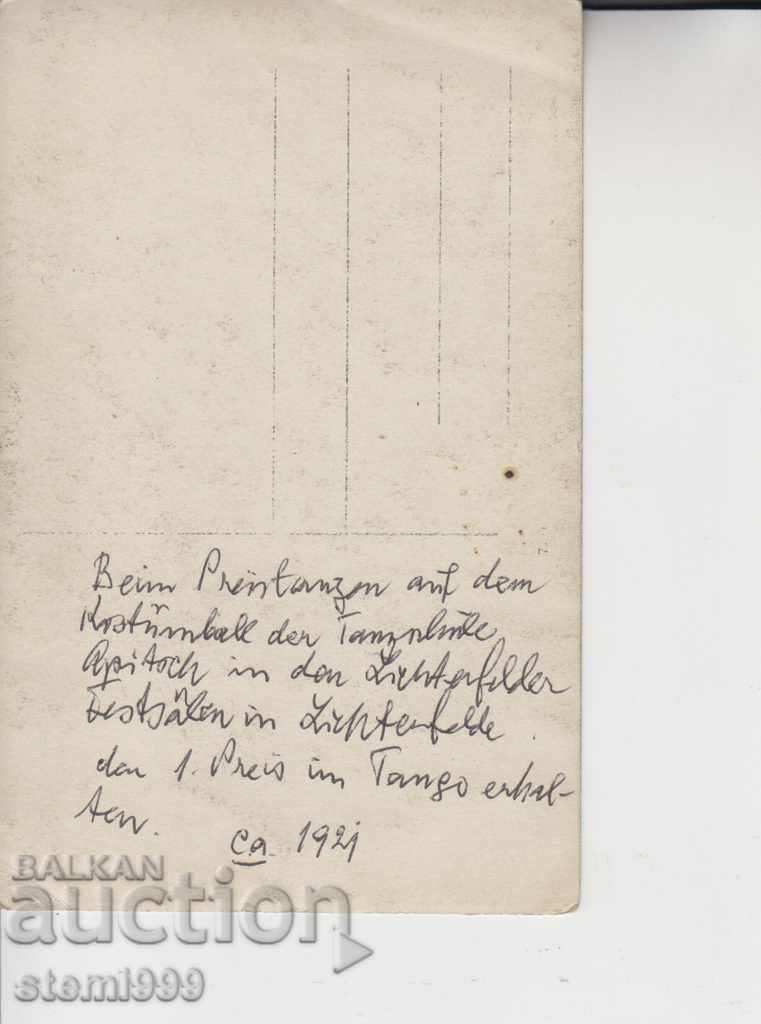 Beim Preistanzen auf dem
Kostümball der Tanzschule
Apitsch in den Lichterfelder
Festsälen in Lichterfelde.
den 1. Preis im Tango erhal-
ten.
ca. 1921
BALKAN
auction
stemi999